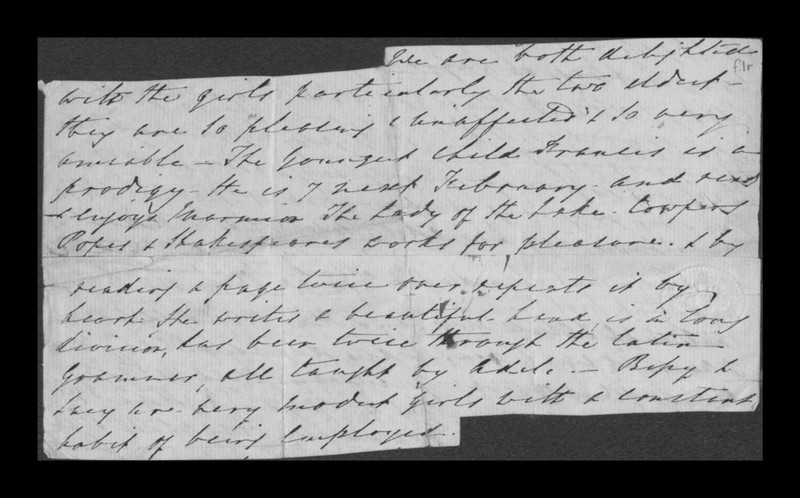 We are both delighted
f.1r
with the girls particularly the two eldest -
they are so pleasing & unaffected & so very
amiable - The youngest child Francis is a
prodigy - He is 7 next February - and reads
& enjoys Marmion The Lady of the Lake. Cowpers
Popes & Shakespeares works for pleasure. & by
reading a page twice over repeats it by
heart She writes a beautiful hand, is in long
division, has been twice through the latin
Grammer, all taught by Adele. - Bessy &
Lucy are very modest girls with a constant
habit of being employed.